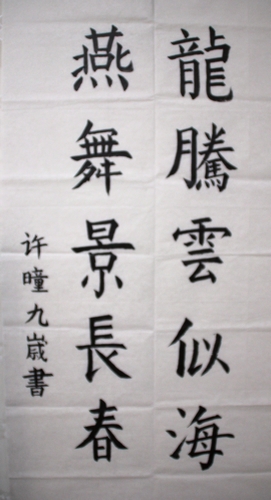 龍騰雲似海
燕舞景長春
许曈九歲書